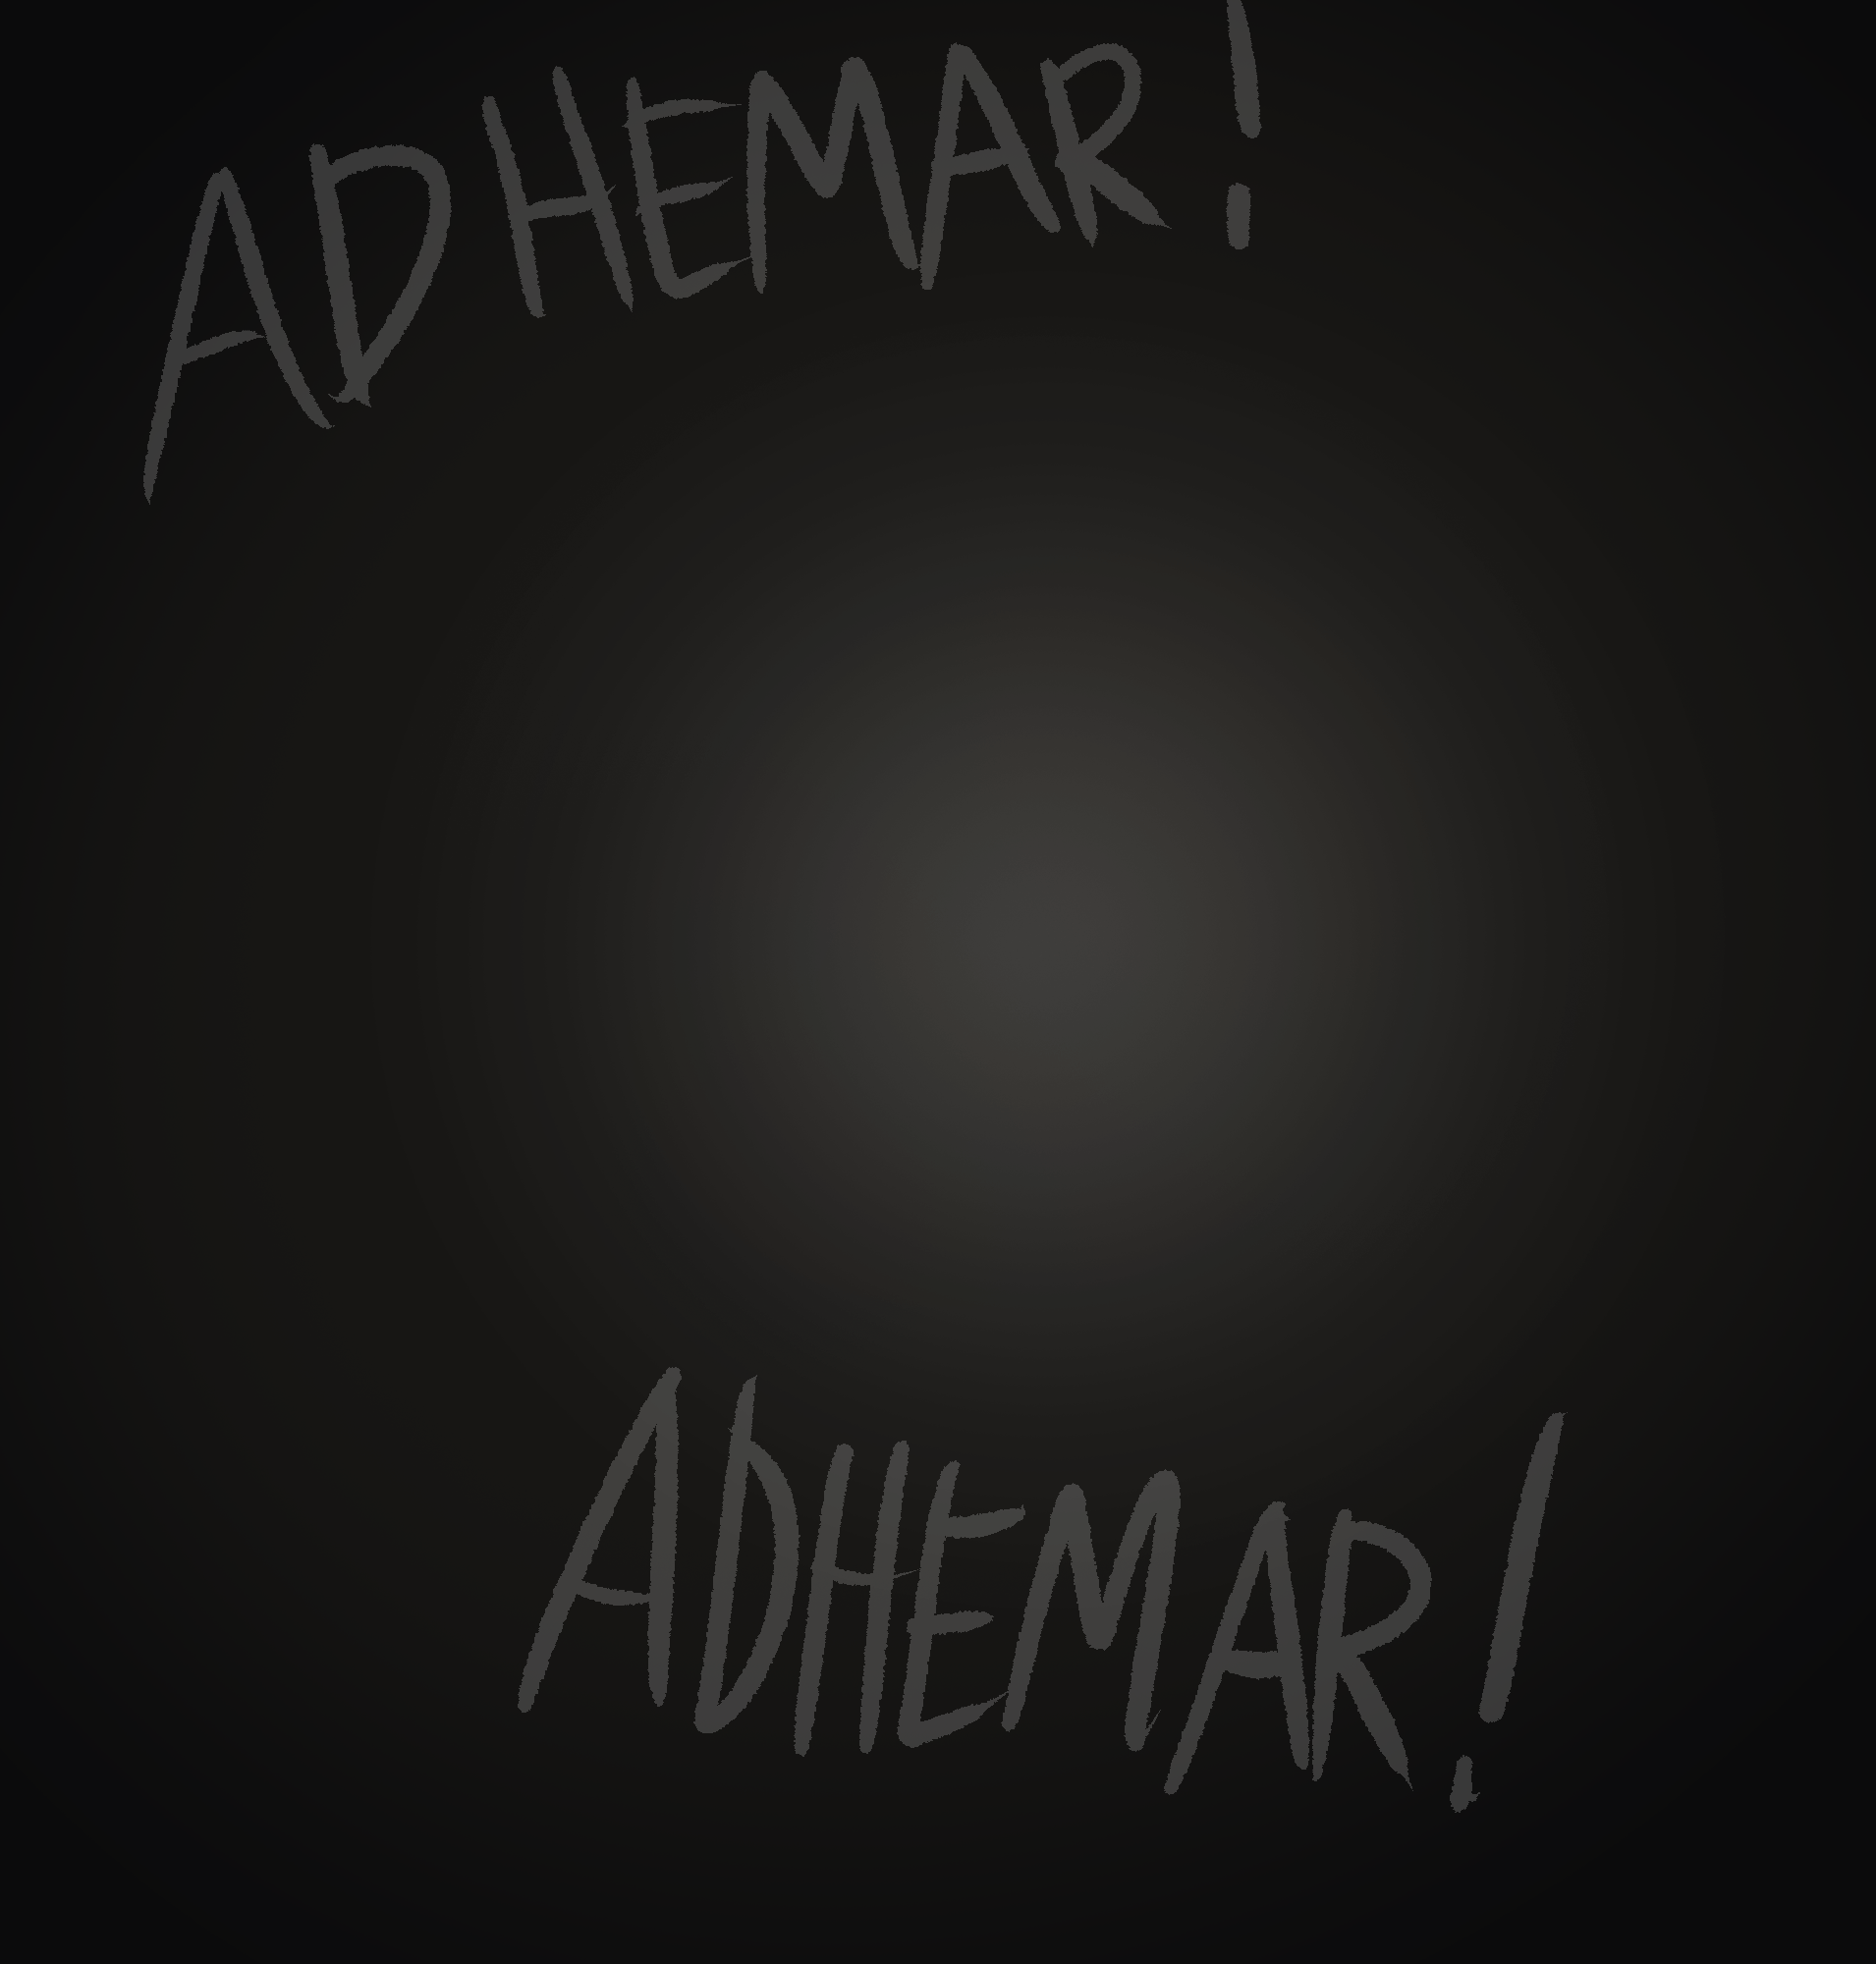 ADHEMAR!
ADHEMAR!